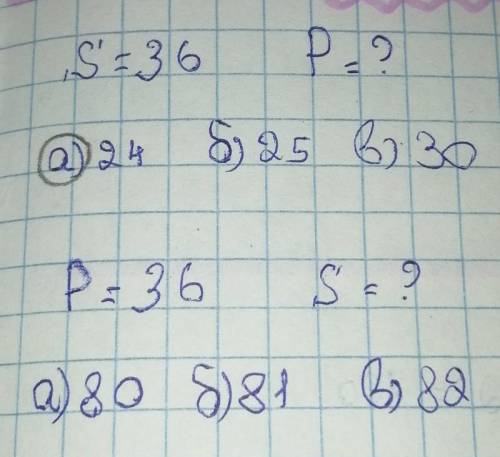 S = 36 P = ?
а) 24 б) 25 в) 30
P = 36 S = ?
а) 80 б) 81 в) 82